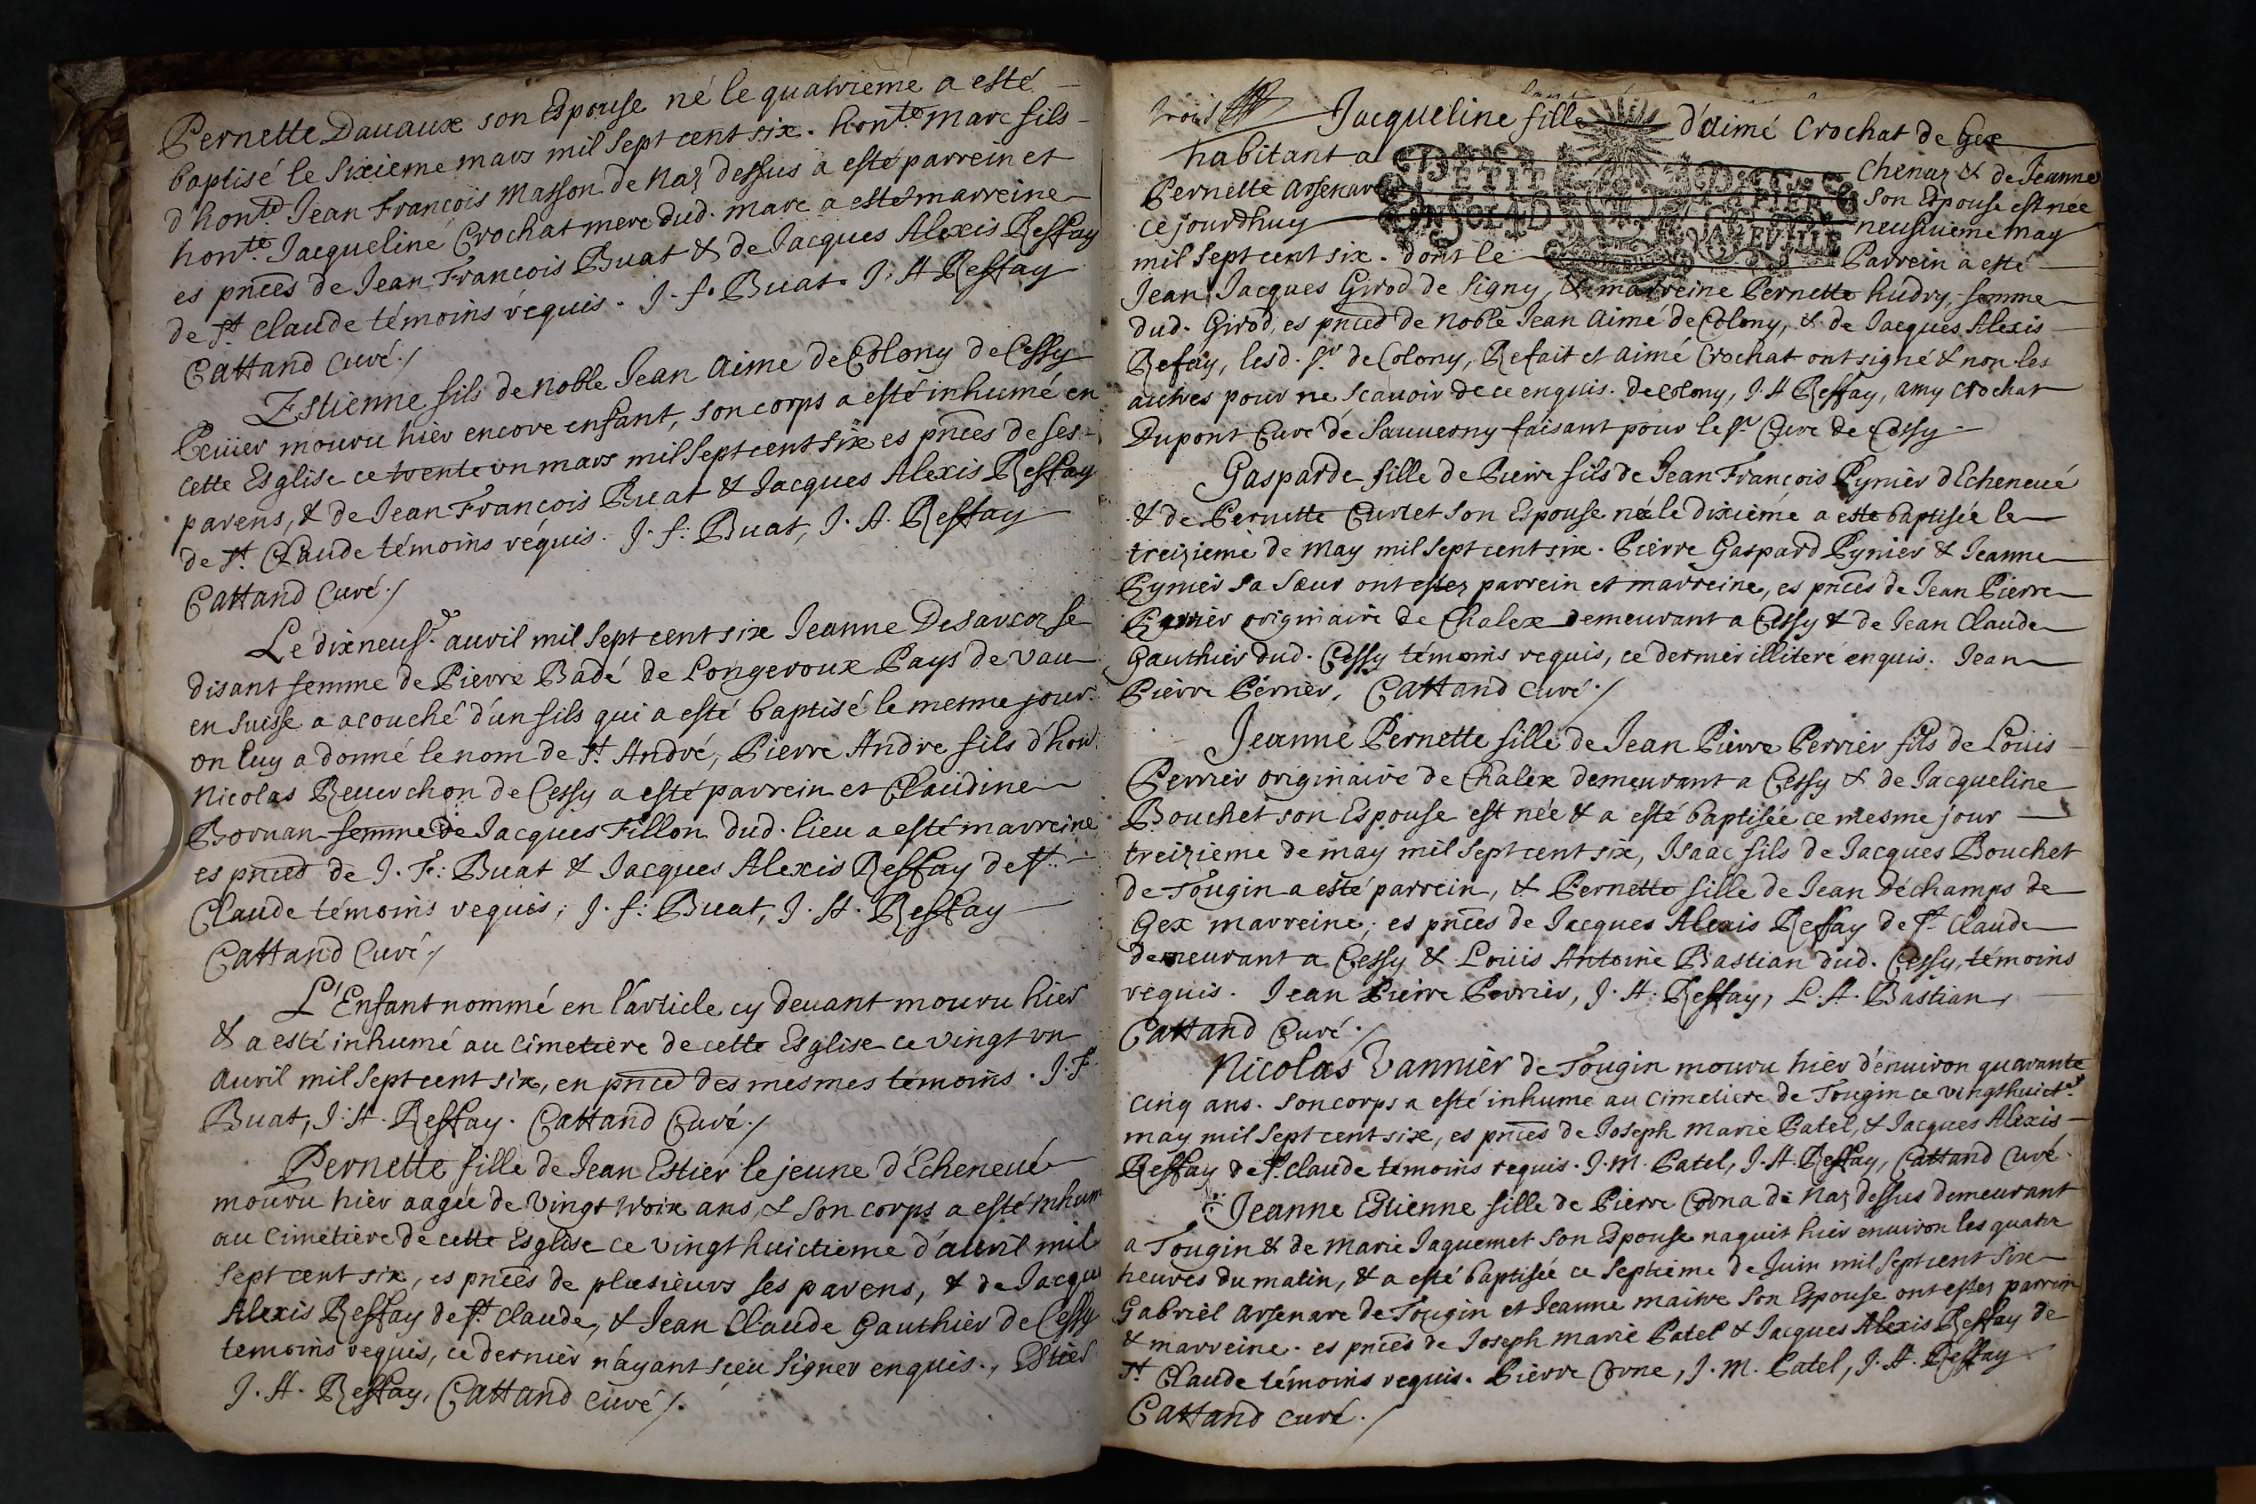 Pernette Davaux son Espouse né le quatrieme a esté
baptisé le sixieme mars mil sept cent six. honte. Marc fils
d'honte. Jean François Masson de Naz dessus a esté parrein et
honte. Jacqueline Crochat mere dud. marc a esté marreine
es pnces de Jean François Buat & de Jacques Alexis Reffay
de St. Claude témoins requis. J. f. Buat. J. A Reffay
Cattand Curé./
Estienne fils de noble Jean Aime de Colony de Cessy
mouru hier encore enfant, son corps a esté inhumé en
cette Esglise ce trente un mars mil sept cent six es pnces de ses
parens, & de Jean François Buat & Jacques Alexis Reffay
de St. Claude témoins réquis. J. f: Buat, J. A. Reffay
Cattand Curé./
Le dixneuf.e auvril mil sept cent six Jeanne se
disant femme de Pierre Badé de Longeroux Pays de Vau
en suisse a acouché d'un fils qui a esté baptisé le mesme jour.
on luy a donné le nom de St. André, Pierre Andre fils d'hon.
Nicolas Reuerchon de Cessy a esté parrein et Claudine
Boruan femme de Jacques Fillon dud. lieu a esté marreine
es pnces de J. F: Buat & Jacques Alexis Reffay de St.
Claude témoins requis; J. f: Buat, J. A. Reffay
Cattand Curé./
L'Enfant nommé en l'article cy deuant mouru hier
& a esté inhumé au cimetière de cette Esglise ce vingt un
auvril mil sept cent six, en pnce des mesmes temoins. J. F.
Buat, J. A. Reffay. Cattand Curé./
Pernette fille de Jean Estier le jeune d'Echeneué
mouru hier aagée de vingt troix ans, & son corps a esté inhum
au cimetière de cette Esglise ce vingt huictieme d'auvril mil
sept cent six, es pnces de plusieurs ses parens, & de Jacque
Alexis Reffay de St. Claude, & Jean Claude Gauthier de Cessy
temoins requis, ce dernier n'ayant sceu signer enquis., Estier
J. A. Reffay, Cattand curé/.
trois Jacqueline fille d'aimé Crochat de Gex
habitant a Chenaz & de Jeanne
Pernette Arsenare son Espouse est née
ce jourdhuy neufuieme may
PETIT PAPIER
mil sept cent six. dont le Parrein a esté
Jean Jacques Girod de Signy, & marreine Pernette hudry, femme
dud. Girod, es pnces de noble Jean Aimé de Colony, & de Jacques Alexis
Refay, lesd. sr. de Colony, Refait et Aimé Crochat ont signé & non les
autres pour ne scauoir de ce enquis. De Colony, J. A Reffay, Amy Crochat
Dupont Curé de Sauuerny faisant pour le sr. Cure de Cessy
Gasparde fille de Pierre fils de Jean François Pynier d'Echeneué
& de Pernette Curtet son Espouse née le dixiéme a este baptisée le
treizieme de May mil sept cent six. Pierre Gaspard Pynier & Jeanne
Pynier sa soeur ont estez parrein et marreine, es pnces de Jean Pierre
Perrier originaire de Chalex demeurant a Cessy & de Jean Claude
Gauthier dud. Cessy témoins requis, ce dernier illiteré enquis. Jean
Pierre Perrier, Cattand curé./
Jeanne Pernette fille de Jean Pierre Perrier fils de Loüis
Perrier originaire de Chalex demeurant a Cessy & de Jacqueline
Bouchet son Espouse est née & a esté baptisée ce mesme jour
treizieme de may mil sept cent six, Isaac fils de Jacques Bouchet
de Tougin a esté parrein, & Pernette fille de Jean Déchamps de
Gex marreine; es pnces de Jacques Alexis Reffay de St Claude
demeurant a Cessy & Loüis Antoine Bastian dud. Cessy, témoins
requis. Jean Pierre Perrier, J. A: Reffay, L. A. Bastian,
Cattand Curé./
Nicolas Vannier de Tougin mouru hier d'enuiron quarante
cinq ans. son corps a esté inhume au cimetiere de Tougin ce vingthuict.e
may mil sept cent six, es pnces de Joseph Marie Patel, & Jacques Alexis
Reffay de St. Claude temoins requis. J. M. Patel, J. A. Reffay, Cattand Curé.
Jeanne Estienne fille de Pierre Corna de Naz dessus demeurant
a Tougin & de Marie Jaquemet son Espouse naquit hier enuiron les quatre
heures du matin, & a esté baptisée ce septième de Juin mil sept cent six
Gabriel Arsenare de Tougin et Jeanne maitre son Espouse ont estez parrein
& marreine. es pnces de Joseph Marie Patel & Jacques Alexis Reffay de
St. Claude témoins requis. Pierre Corne, J. M. Patel, J. A. Reffay
Cattand curé./